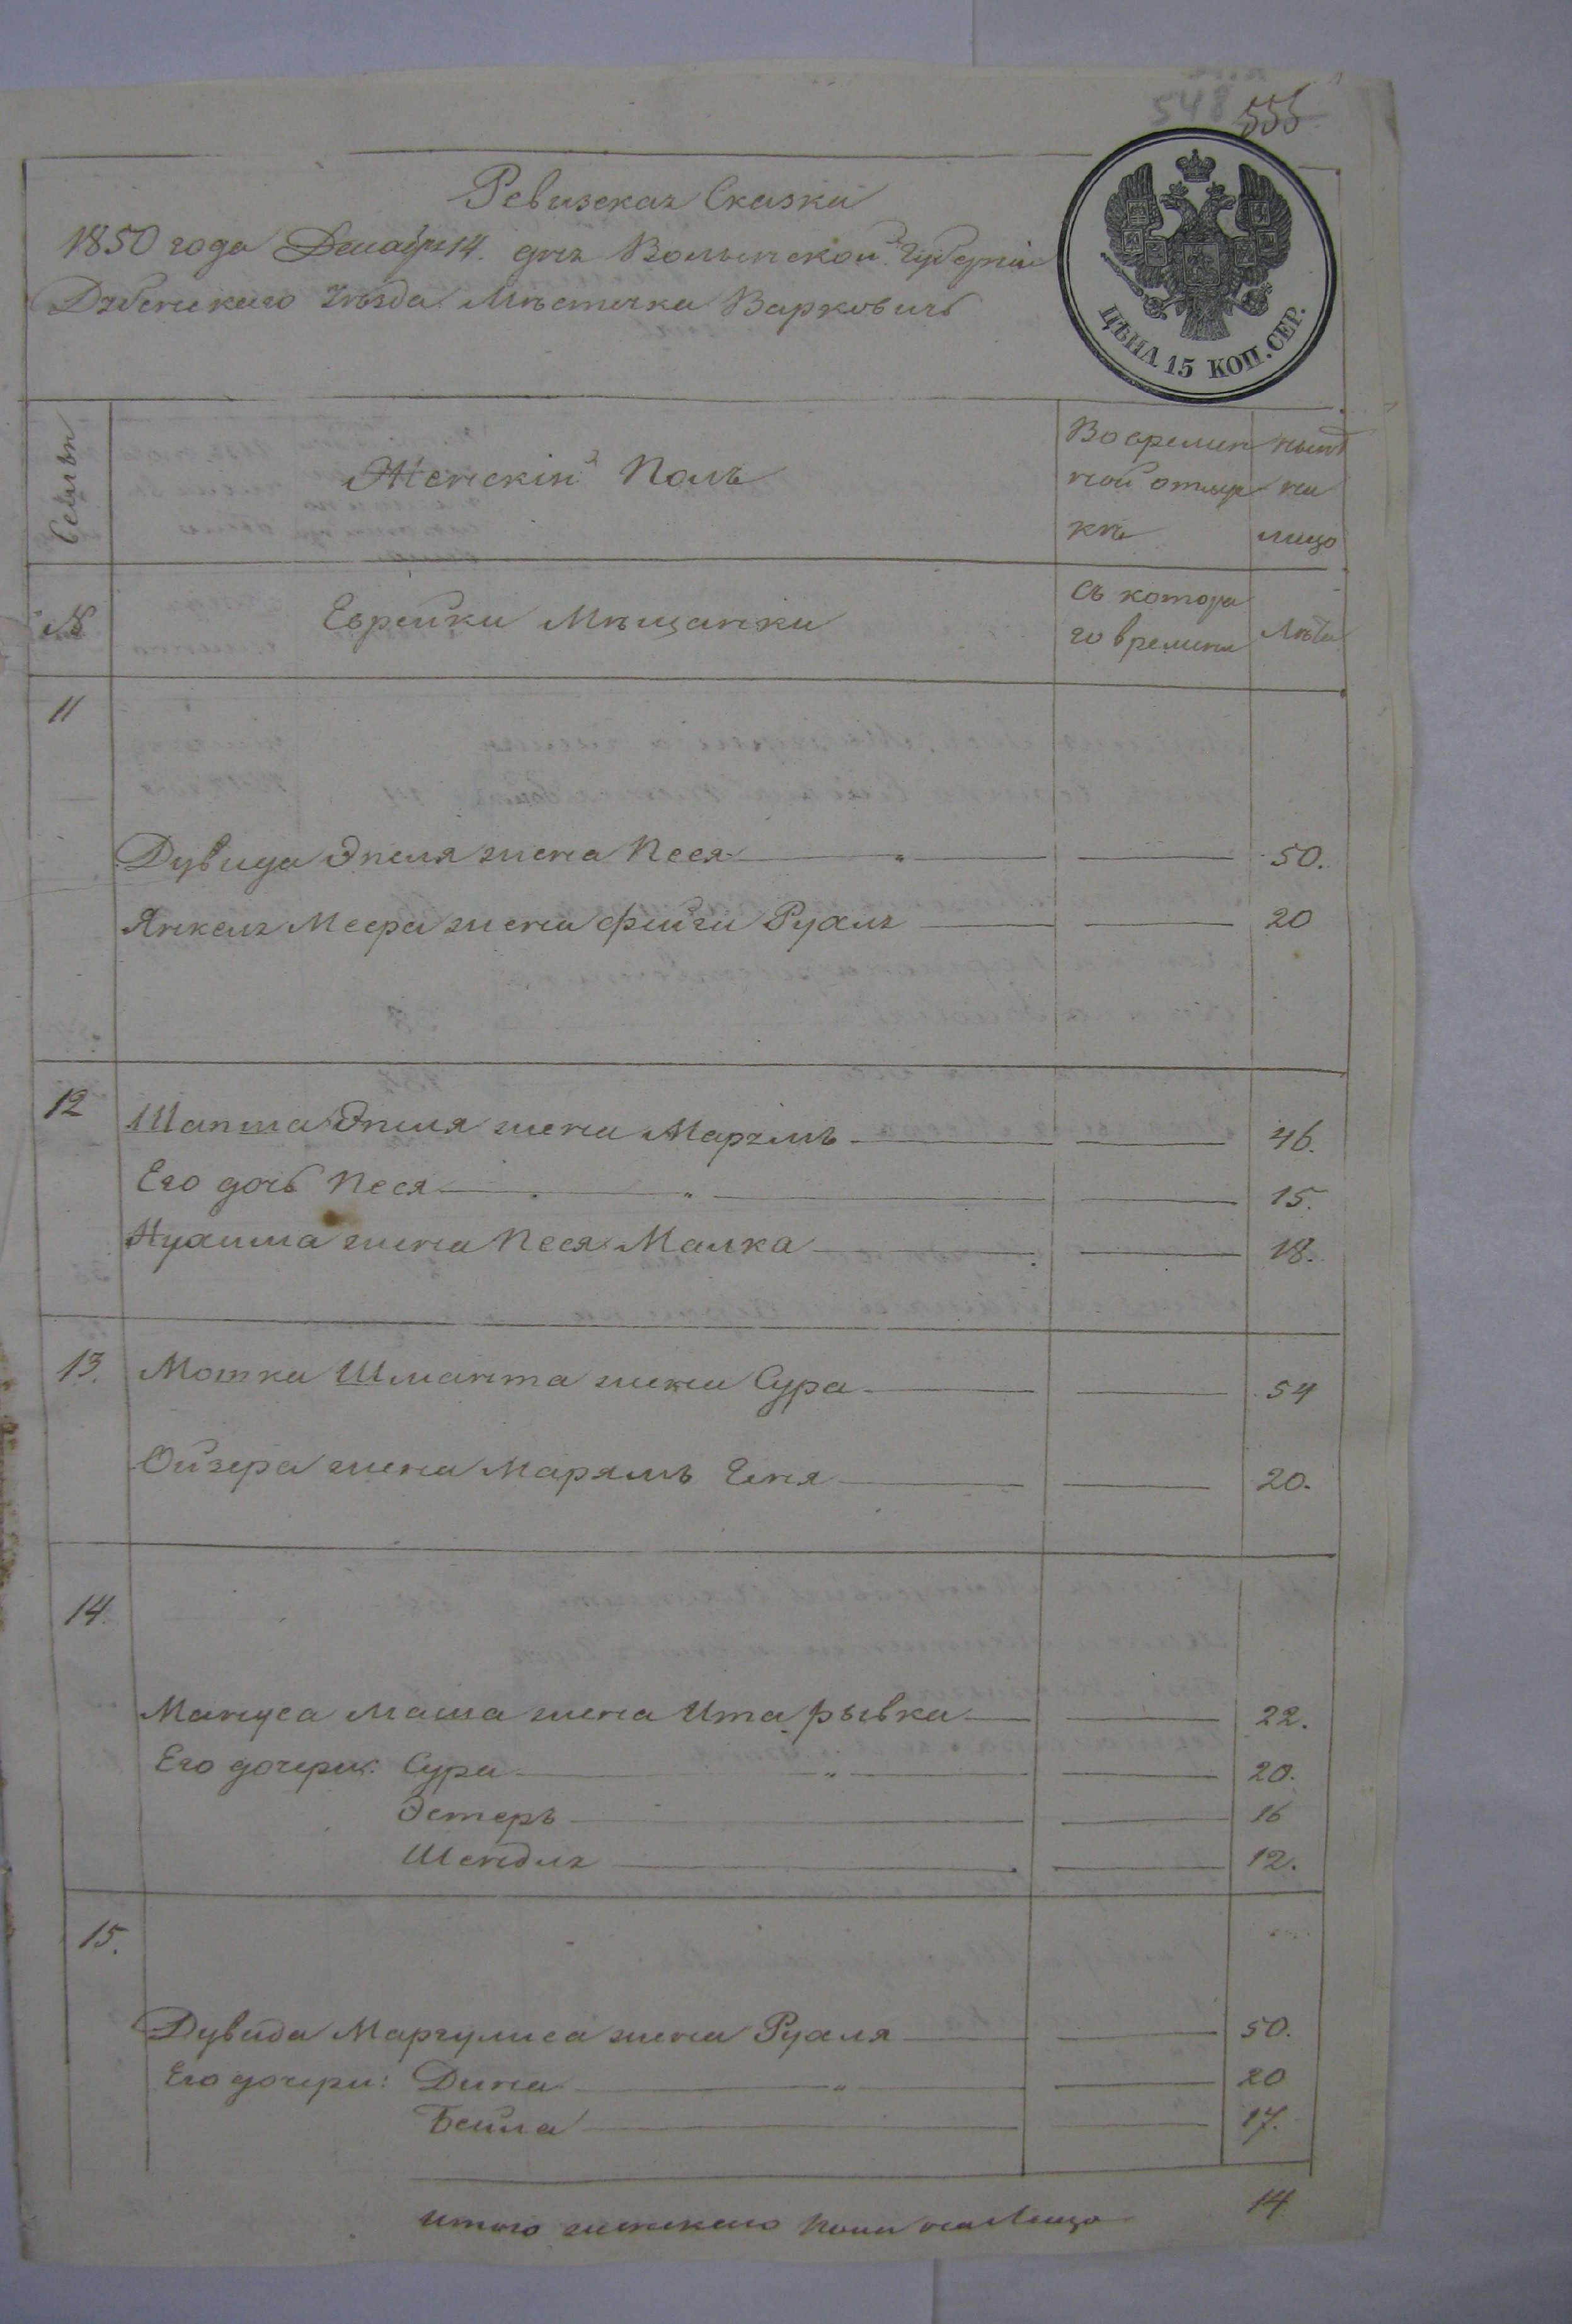 548 555
Ревизская Сказка
1850 года Декабря 14. дня Волынской Губерніи
Дубенскаго Уезда Мѣстечка Варковичь
ЦѢНА 15 КОП. СЕР.
Семьи
Женскій Полъ
Во времен
ной отлуч
кѣ
нынѣ
на
лицо
№
Еврейки Мѣщанки
Съ котора
го времени
Лѣта
11
Дувида Эпеля жена Песя 50.
Янкеля Меера жена Фейга Рухля 20
12
Шапша Эпеля жена Марямъ 46.
Его дочь Песя 15.
Нухима жена Песя Малка 18.
13. Мошка Шманта жена Сура 54
Ойзера жена Марямъ Еня 20.
14.
Мануса Маша жена Ита Рывка 22.
Его дочери: Сура 20.
Эстеръ 16
Шендля 12.
15.
Дувида Маргулиса жена Рухля 50.
Его дочери: Дина 20
Бейла 17.
Итого женскаго пола на лицо 14